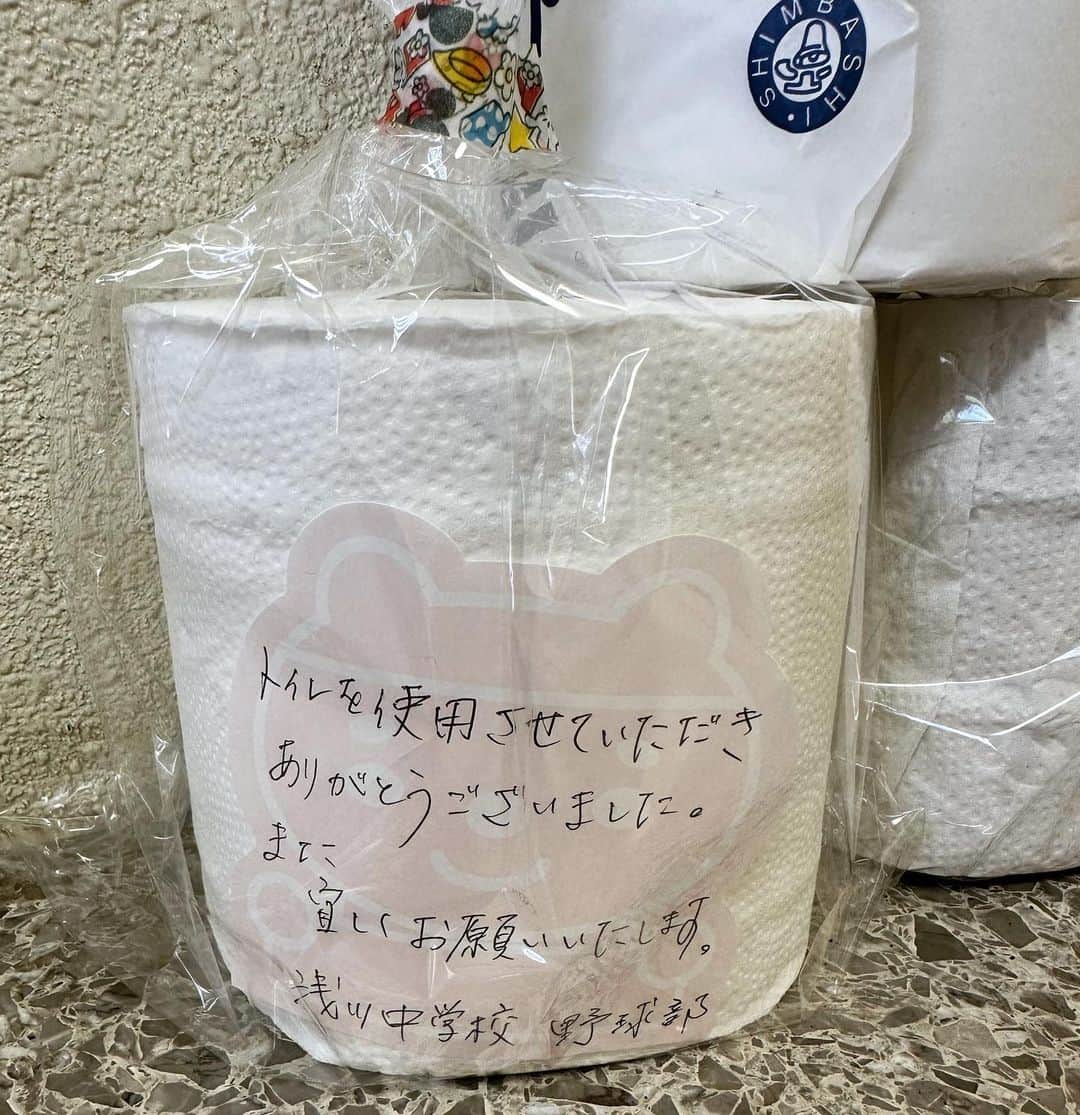 SHIMBASHI・
トイレを使用させていただき
ありがとうございました。
また
宜しくお願いいたします。
浅川中学校 野球部